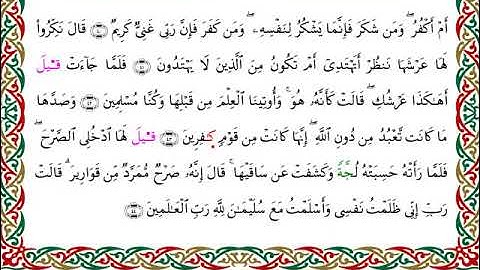 أَمْ أَكْفُرُ ۖ وَمَن شَكَرَ فَإِنَّمَا يَشْكُرُ لِنَفْسِهِۦ ۖ وَمَن كَفَرَ فَإِنَّ رَبِّى غَنِىٌّ كَرِيمٌ ﴿٤٠﴾ قَالَ نَكِّرُوا۟
لَهَا عَرْشَهَا نَنظُرْ أَتَهْتَدِىٓ أَمْ تَكُونُ مِنَ ٱلَّذِينَ لَا يَهْتَدُونَ ﴿٤١﴾ فَلَمَّا جَآءَتْ قِيلَ
أَهَٰكَذَا عَرْشُكِ ۖ قَالَتْ كَأَنَّهُۥ هُوَ ۚ وَأُوتِينَا ٱلْعِلْمَ مِن قَبْلِهَا وَكُنَّا مُسْلِمِينَ ﴿٤٢﴾ وَصَدَّهَا
مَا كَانَت تَّعْبُدُ مِن دُونِ ٱللَّهِ ۖ إِنَّهَا كَانَتْ مِن قَوْمٍ كَٰفِرِينَ ﴿٤٣﴾ قِيلَ لَهَا ٱدْخُلِى ٱلصَّرْحَ ۖ
فَلَمَّا رَأَتْهُ حَسِبَتْهُ لُجَّةً وَكَشَفَتْ عَن سَاقَيْهَا ۚ قَالَ إِنَّهُۥ صَرْحٌ مُّمَرَّدٌ مِّن قَوَارِيرَ ۗ قَالَتْ
رَبِّ إِنِّى ظَلَمْتُ نَفْسِى وَأَسْلَمْتُ مَعَ سُلَيْمَٰنَ لِلَّهِ رَبِّ ٱلْعَٰلَمِينَ ﴿٤٤﴾